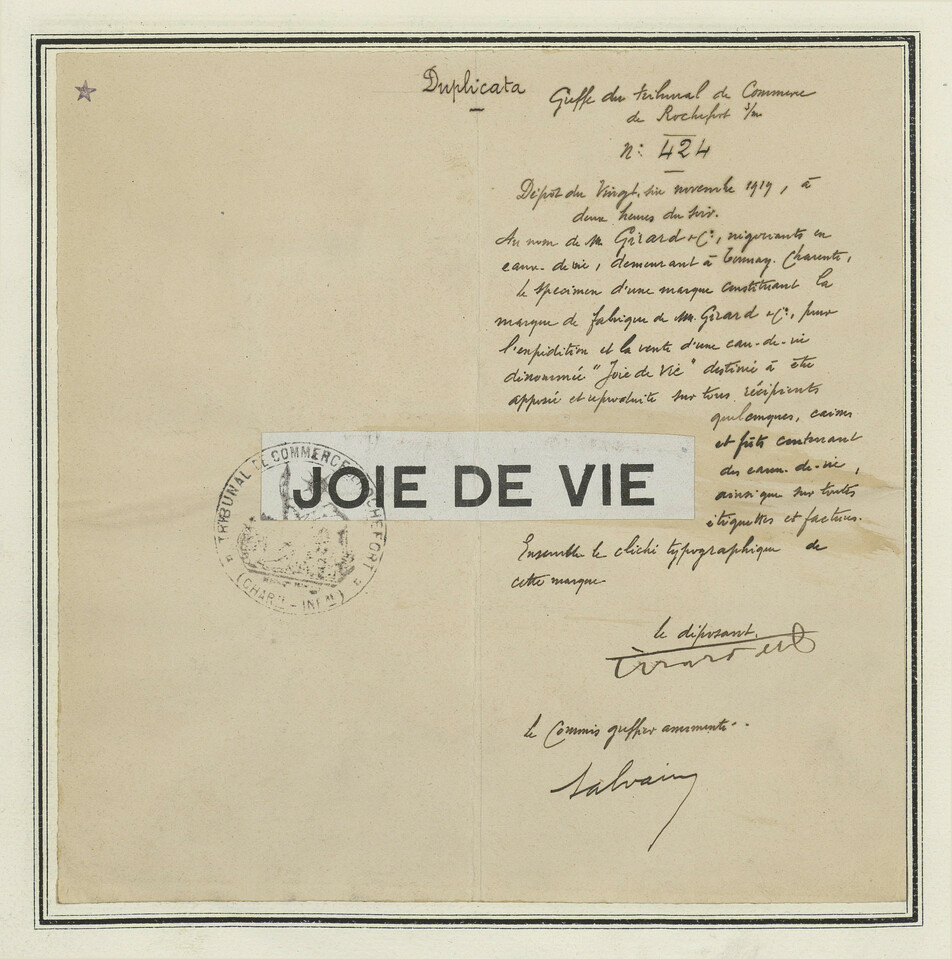 Duplicata
Greffe du Tribunal de Commerce
de Rochefort s/m
N: 424
Dépôt du Vingt-six novembre 1919, à
deux heures du soir.
Au nom de M. Girard & Cie, négociants en
eaux-de-vie, demeurant à Tonnay-Charente,
le spécimen d'une marque constituant la
marque de fabrique de M. Girard & Cie, pour
l'expédition et la vente d'une eau-de-vie
dénommée "Joie de Vie" destinée à être
apposée et reproduite sur tous récipients
quelconques, caisses
et fûts contenant
des eaux-de-vie,
ainsi que sur toutes
étiquettes et factures.
JOIE DE VIE
TRIBUNAL DE COMMERCE ROCHEFORT
(CHARte - INFre)
Ensemble le cliché typographique de
cette marque
le déposant.
le Commis greffier assermenté